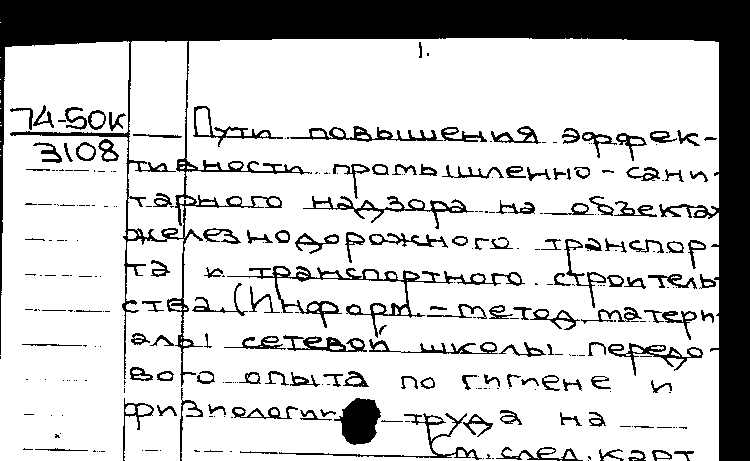 1.
74-50к
3108
Пути повышения эффек-
тивности промышленно-сани-
тарного надзора на объектах
железнодорожного транспор-
та и транспортного строитель-
ства. (Информ.-метод. матери-
алы сетевой школы передо-
вого опыта по гигиене и
физиологии труда на
См. след. карт